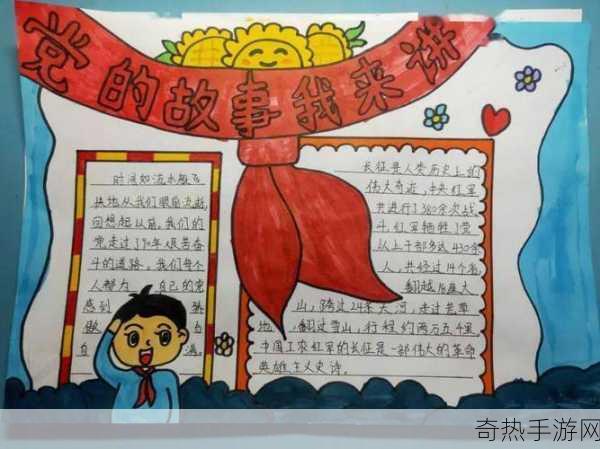 党的故事我来讲
时间如流水般飞
快地从我们眼前流逝
回想起以前,我们的
党走过了90年艰苦奋
斗的道路,我们每个
人都为 自己的党
感到 骄
傲 自
自 满。
长征是人类历史上的
伟大奇迹,中央红军
共进行了380余次战
斗,红军牺牲了营
以上干部多达430余
人,共经过14个省,
翻越18座大
山,跨过24条大河,走过荒草
地,翻过雪山,行程约两万五千里,
中国工农红军的长征是一部伟大的革命
英雄主义史诗。
奇热手游网